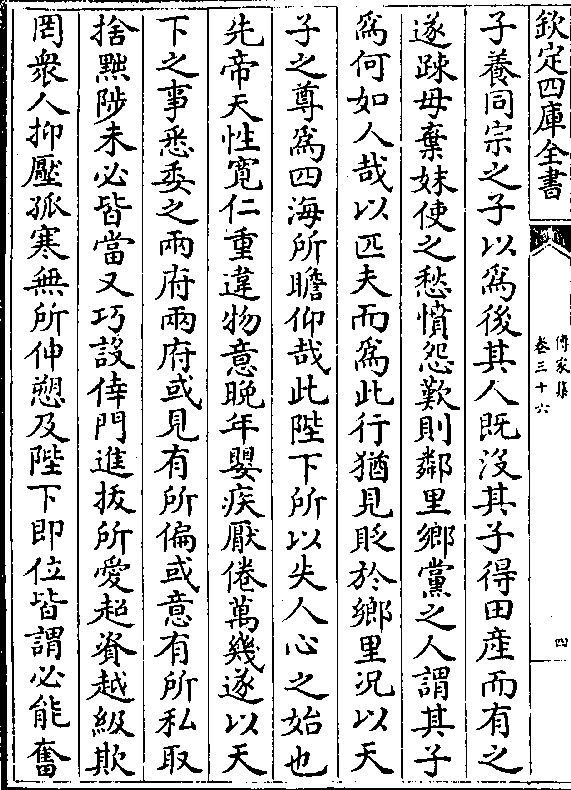 欽定四庫全書
傳家集
卷三十六
四
子養同宗之子以爲後其人既没其子得田產而有之
遂踈母棄妹使之愁憤怨歎則鄰里鄉黨之人謂其子
爲何如人哉以匹夫而爲此行猶見貶於鄉里况以天
子之尊爲四海所瞻仰哉此陛下所以失人心之始也
先帝天性寛仁重違物意晚年嬰疾厭倦萬幾遂以天
下之事悉委之兩府兩府或見有所偏或意有所私取
捨黜陟未必皆當又巧設倖門進抜所愛超資越級欺
罔衆人抑壓孤寒無所伸愬及陛下即位皆謂必能奮